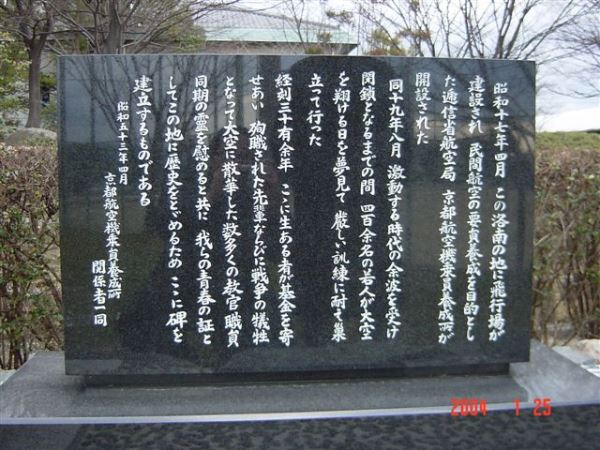 昭和十七年四月 この洛南の地に飛行場が
建設され 民間航空の要員養成を目的とし
た逓信省航空局 京都航空機乗員養成所が
開設された
同十九年八月 激動する時代の余波を受け
閉鎖となるまでの間 四百余名の若人が大空
を翔ける日を夢見て 厳しい訓練に耐え巣
立って行った
経刻三十有余年 ここに生ある者が基金を寄
せあい 殉職された先輩ならびに戦争の犠牲
となって大空に散華した数多くの教官職員
同期の霊を慰めると共に 我らの青春の証と
してこの地に歴史をとどめるため ここに碑を
建立するものである
昭和五十三年四月
京都航空機乗員養成所
関係者一同
2004 1 25